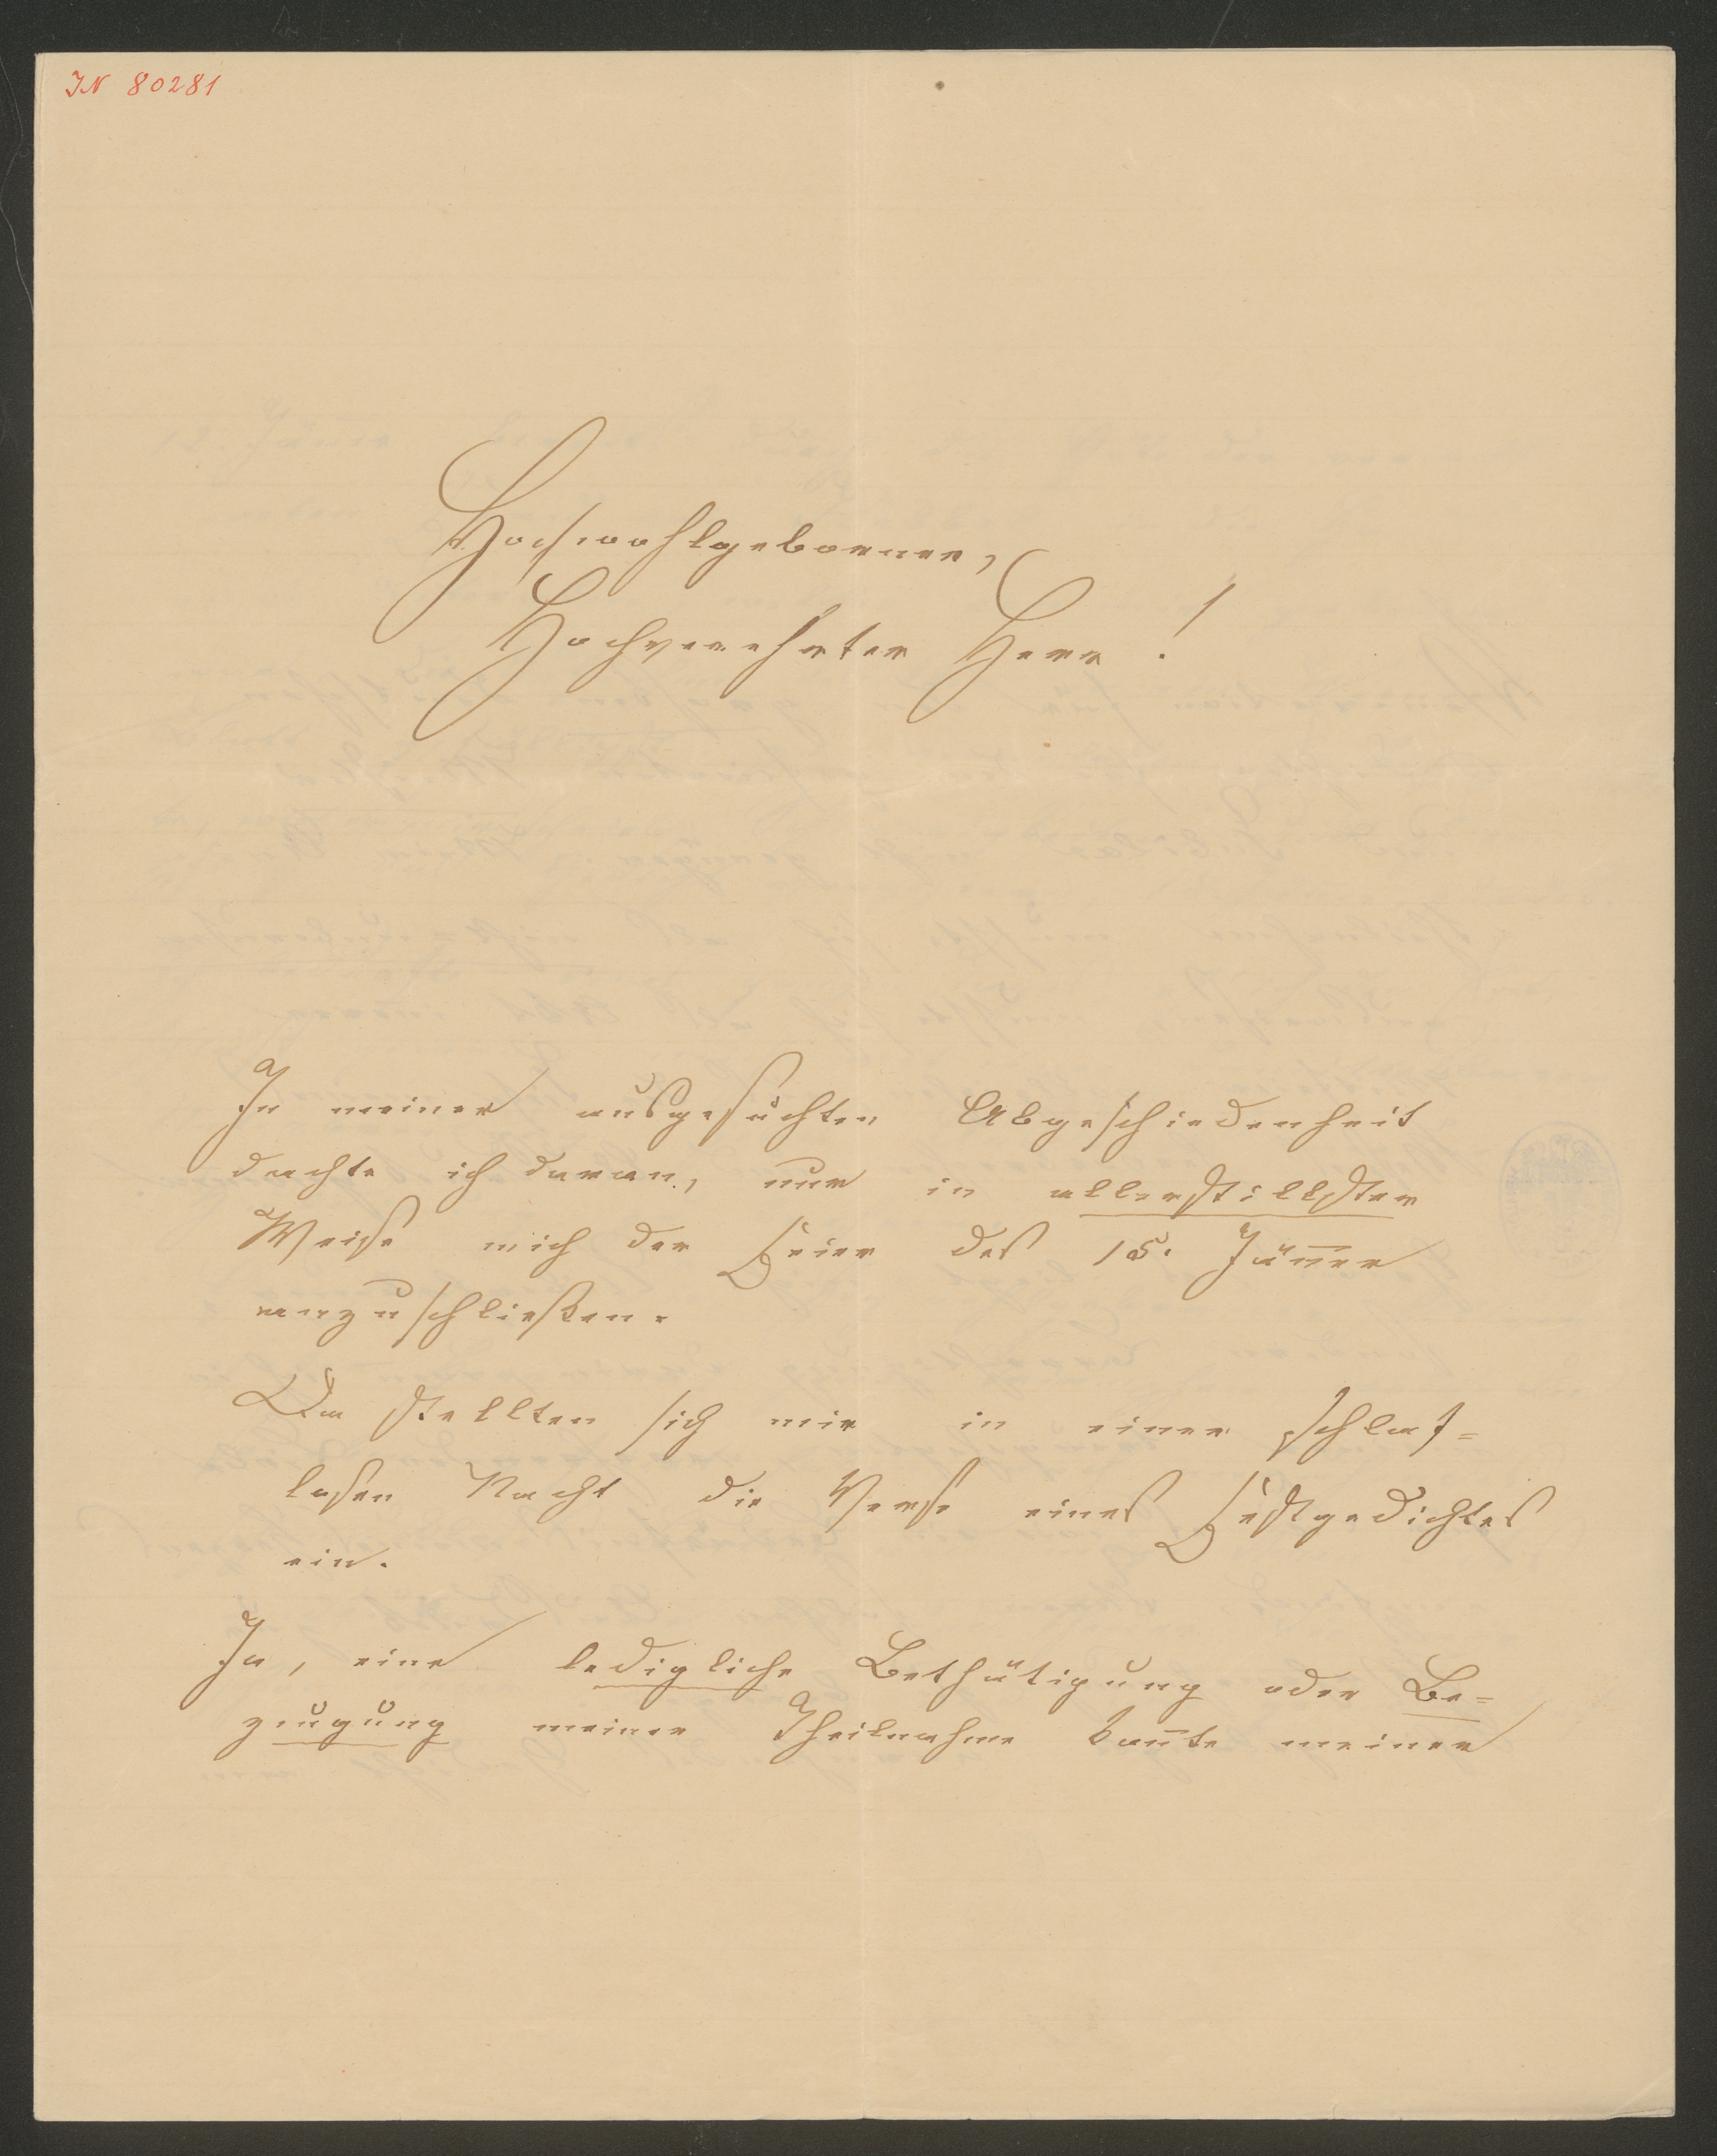 IN 80281
Hochwohlgeborner,
Hochverehrter Herr!
In meiner ausgesuchten Abgeschiedenheit
dachte ich daran, nur in allerstillster
Weise mich der Feier des 15. Jäner
anzuschließen.
Da stellten sich mir in einer schlaf=
losen Nacht die Verse eines Festgedichtes
ein.
Ja, eine ledigliche Bethätigung oder Be=
zeugung meiner Theilnahme konte meiner